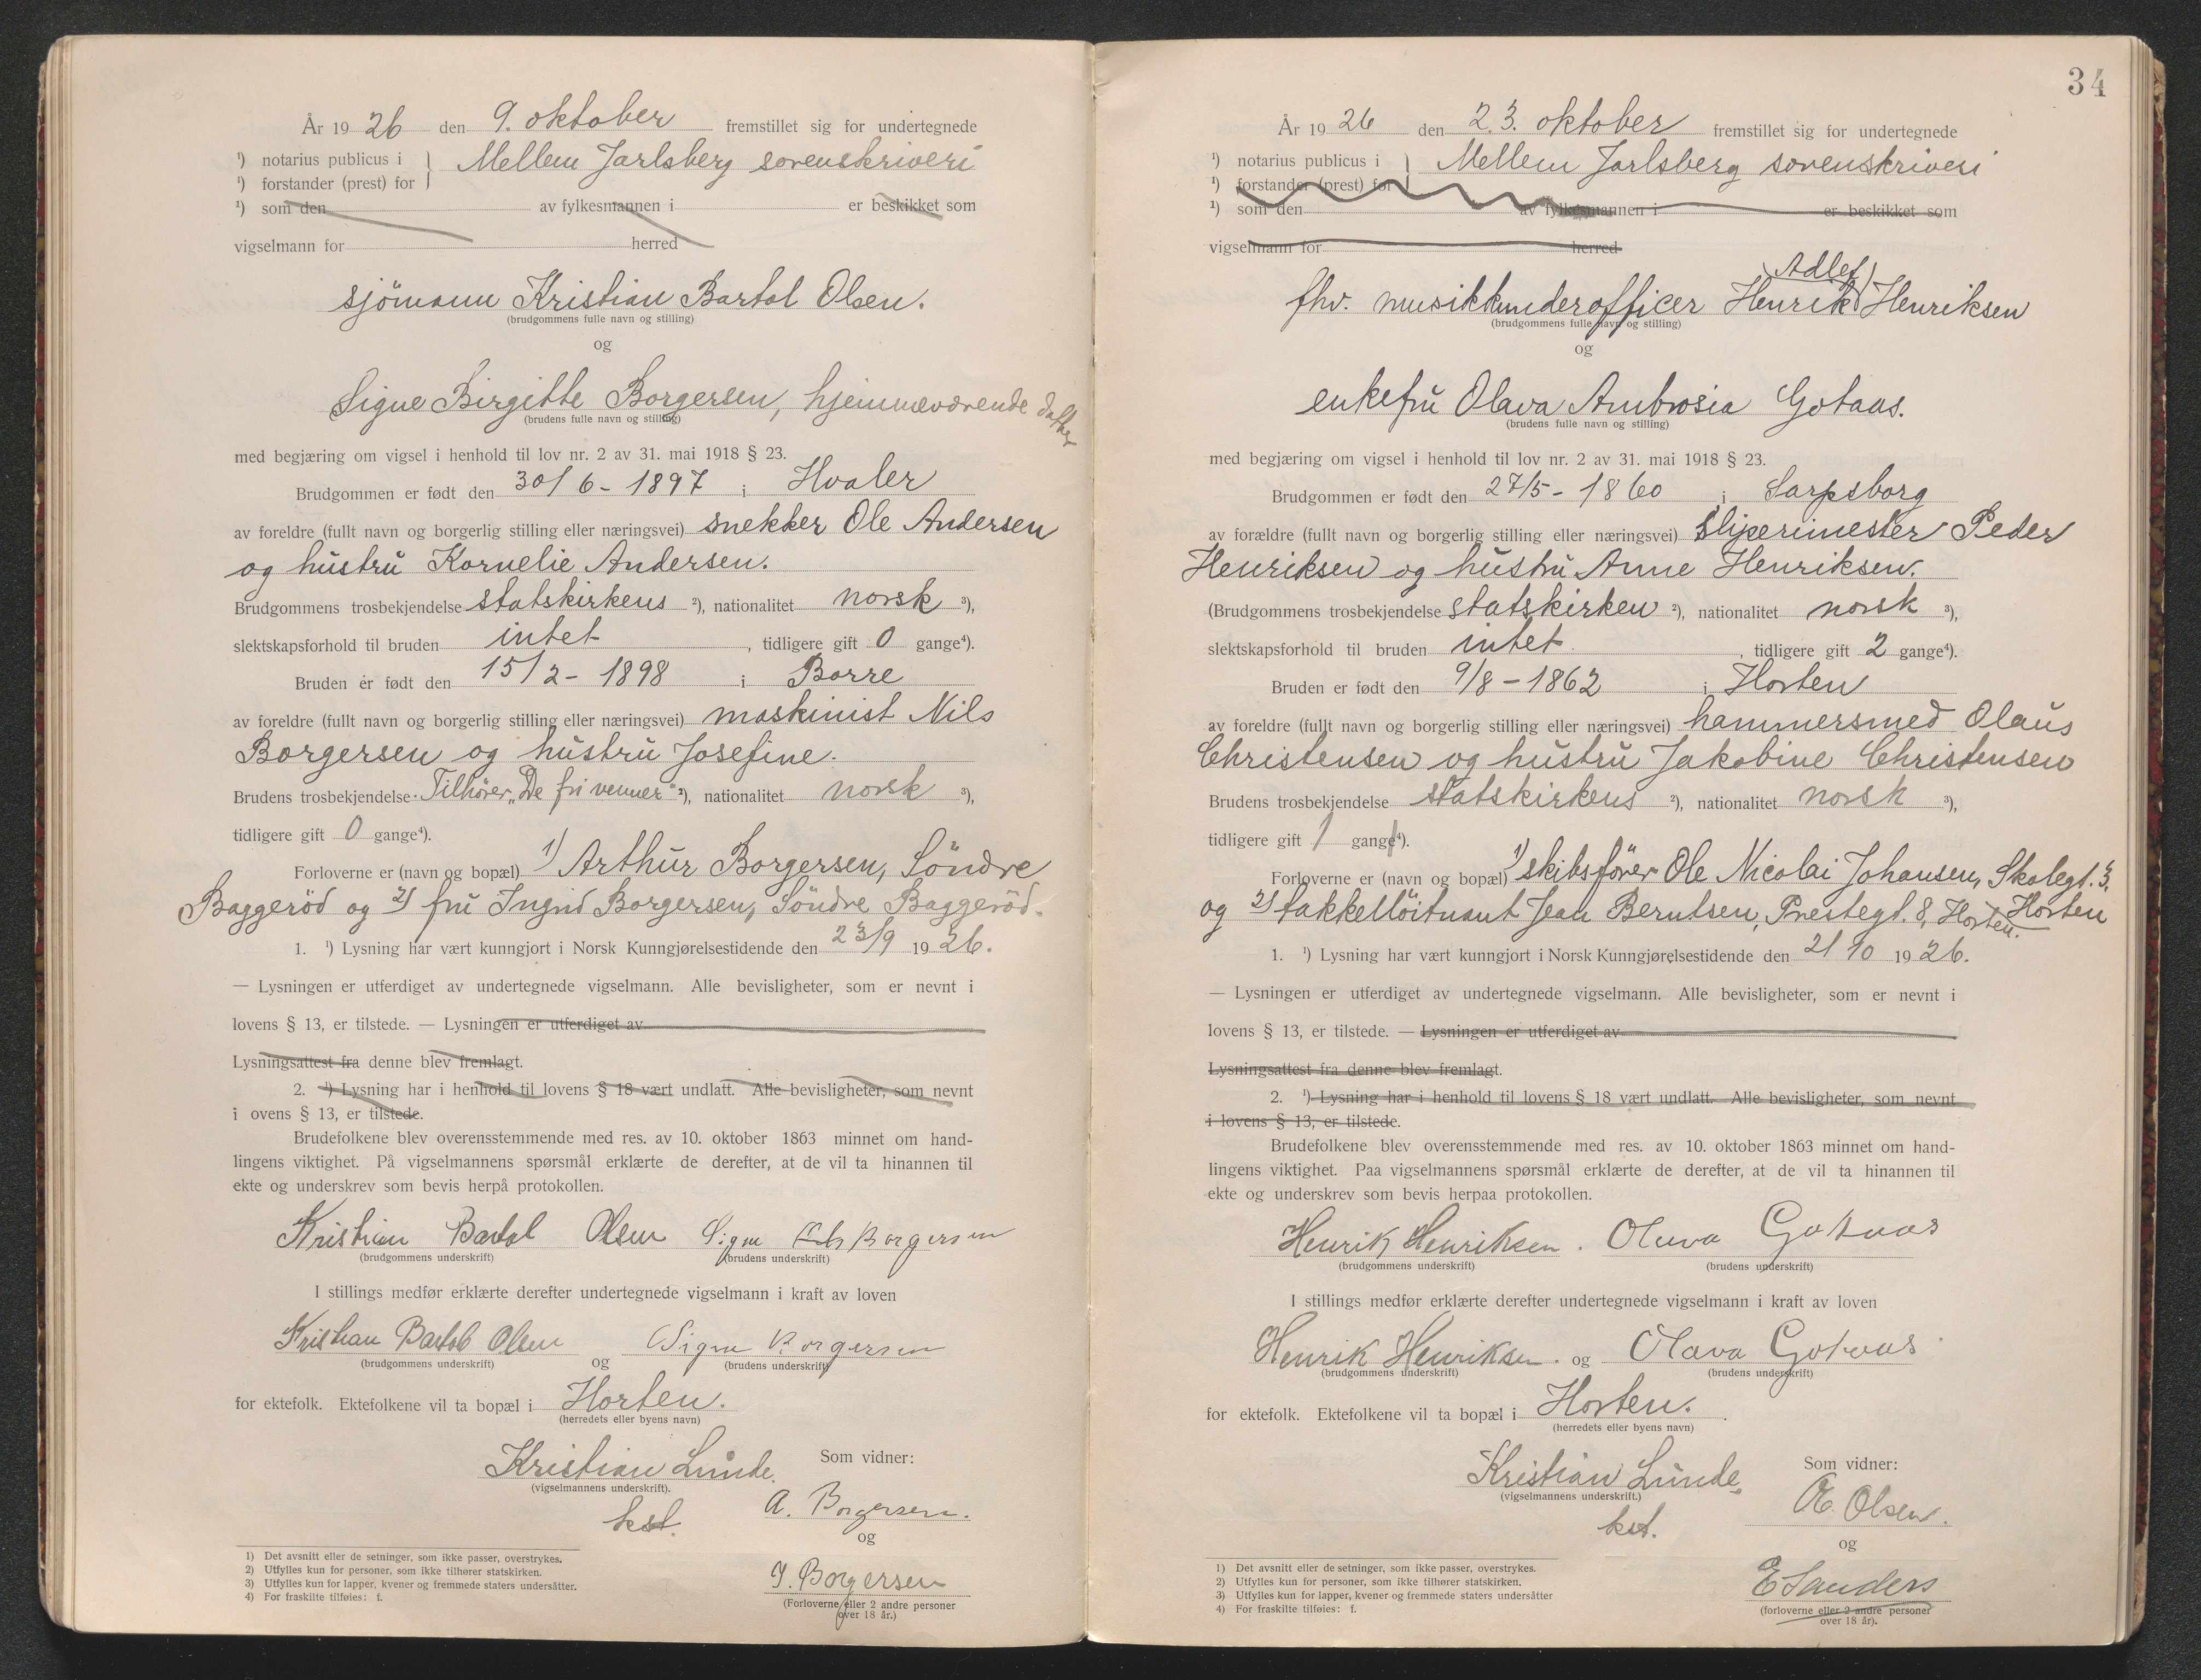 År 1926 den 9. oktober fremstillet sig for undertegnede
¹) notarius publicus i } Mellem Jarlsberg sorenskriveri
¹) forstander (prest) for
¹) som den av fylkesmannen i er beskikket som
vigselmann for herred
sjömann Kristian Bartol Olsen.
(brudgommens fulle navn og stilling)
og
Signe Birgitte Borgersen, hjemmeværende datter
(brudens fulle navn og stilling)
med begjæring om vigsel i henhold til lov nr. 2 av 31. mai 1918 § 23.
Brudgommen er født den 30/6 - 1897 i Hvaler
av foreldre (fullt navn og borgerlig stilling eller næringsvei) snekker Ole Andersen
og hustru Kornelie Andersen.
Brudgommens trosbekjendelse statskirkens ²), nationalitet norsk ³),
slektskapsforhold til bruden intet, tidligere gift 0 gange⁴).
Bruden er født den 15/2 - 1898 i Borre
av foreldre (fullt navn og borgerlig stilling eller næringsvei) maskinist Nils
Borgersen og hustru Josefine.
Brudens trosbekjendelse Tilhører „De fri venner" ²), nationalitet norsk ³),
tidligere gift 0 gange⁴).
Forloverne er (navn og bopæl) 1) Arthur Borgersen, Söndre
Baggeröd og 2) fru Ingrid Borgersen, Söndre Baggeröd.
1. ¹) Lysning har vært kunngjort i Norsk Kunngjørelsestidende den 23/9 1926.
— Lysningen er utferdiget av undertegnede vigselmann. Alle bevisligheter, som er nevnt i
lovens § 13, er tilstede. — Lysningen er utferdiget av
Lysningsattest fra denne blev fremlagt.
2. ¹) Lysning har i henhold til lovens § 18 vært undlatt. Alle bevisligheter, som nevnt
i ovens § 13, er tilstede.
Brudefolkene blev overensstemmende med res. av 10. oktober 1863 minnet om hand-
lingens viktighet. På vigselmannens spørsmål erklærte de derefter, at de vil ta hinannen til
ekte og underskrev som bevis herpå protokollen.
Kristian Bartol Olsen Signe Borgersen
(brudgommens underskrift) (brudens underskrift)
I stillings medfør erklærte derefter undertegnede vigselmann i kraft av loven
Kristian Bartol Olsen og Signe Borgersen
(brudgommens underskrift) (brudens underskrift)
for ektefolk. Ektefolkene vil ta bopæl i Horten.
(herredets eller byens navn)
Kristian Lunde Som vidner:
(vigselmannens underskrift).
kst. A. Borgersen.
og
I. Borgersen
(Forloverne eller 2 andre personer
over 18 år.)
1) Det avsnitt eller de setninger, som ikke passer, overstrykes.
2) Utfylles kun for personer, som ikke tilhører statskirken.
3) Utfylles kun for lapper, kvener og fremmede staters undersåtter.
4) For fraskilte tilføies: f.
34
År 1926 den 23. oktober fremstillet sig for undertegnede
¹) notarius publicus i } Mellem Jarlsberg sorenskriveri
¹) forstander (prest) for
¹) som den av fylkesmannen i er beskikket som
vigselmann for herred
(Adlef)
fhv. musikkunderofficer Henrik Henriksen
(brudgommens fulle navn og stilling)
og
enkefru Olava Ambrosia Gotaas.
(brudens fulle navn og stilling)
med begjæring om vigsel i henhold til lov nr. 2 av 31. mai 1918 § 23.
Brudgommen er født den 27/5 - 1860 i Sarpsborg
av forældre (fullt navn og borgerlig stilling eller næringsvei) sliperimester Peder
Henriksen og hustru Anne Henriksen.
(Brudgommens trosbekjendelse statskirken ²), nationalitet norsk ³),
slektskapsforhold til bruden intet, tidligere gift 2 gange⁴).
Bruden er født den 9/8 - 1862 i Horten
av foreldre (fullt navn og borgerlig stilling eller næringsvei) hammersmed Olaus
Christensen og hustru Jakobine Christensen
Brudens trosbekjendelse statskirkens ²), nationalitet norsk ³),
tidligere gift 1 gange⁴).
Forloverne er (navn og bopæl) 1) skibsfører Ole Nicolai Johansen, Skolegt. 3, Horten
og 2) takkelløitnant Jean Berntsen, Prestegt. 8, Horten.
1. ¹) Lysning har vært kunngjort i Norsk Kunngjørelsestidende den 2/10 1926.
— Lysningen er utferdiget av undertegnede vigselmann. Alle bevisligheter, som er nevnt i
lovens § 13, er tilstede. — Lysningen er utferdiget av
Lysningsattest fra denne blev fremlagt.
2. ¹) Lysning har i henhold til lovens § 18 vært undlatt. Alle bevisligheter, som nevnt
i lovens § 13, er tilstede.
Brudefolkene blev overensstemmende med res. av 10. oktober 1863 minnet om hand-
lingens viktighet. Paa vigselmannens spørsmål erklærte de derefter, at de vil ta hinannen til
ekte og underskrev som bevis herpaa protokollen.
Henrik Henriksen. Olava Gotaas
(brudgommens underskrift) (brudens underskrift)
I stillings medfør erklærte derefter undertegnede vigselmann i kraft av loven
Henrik Henriksen. og Olava Gotaas
(brudgommens underskrift) (brudens underskrift)
for ektefolk. Ektefolkene vil ta bopæl i Horten.
(herredets eller byens navn)
Kristian Lunde, Som vidner:
(vigselmannens underskrift.)
kst. Olsen.
og
E Sanders
(forloverne eller 2 andre personer
over 18 år).
1) Det avsnitt eller de setninger, som ikke passer, overstrykes.
2) Utfylles kun for personer, som ikke tilhører statskirken.
3) Utfylles kun for lapper, kvener og fremmede staters undersåtter
4) For fraskilte tilføies: f.